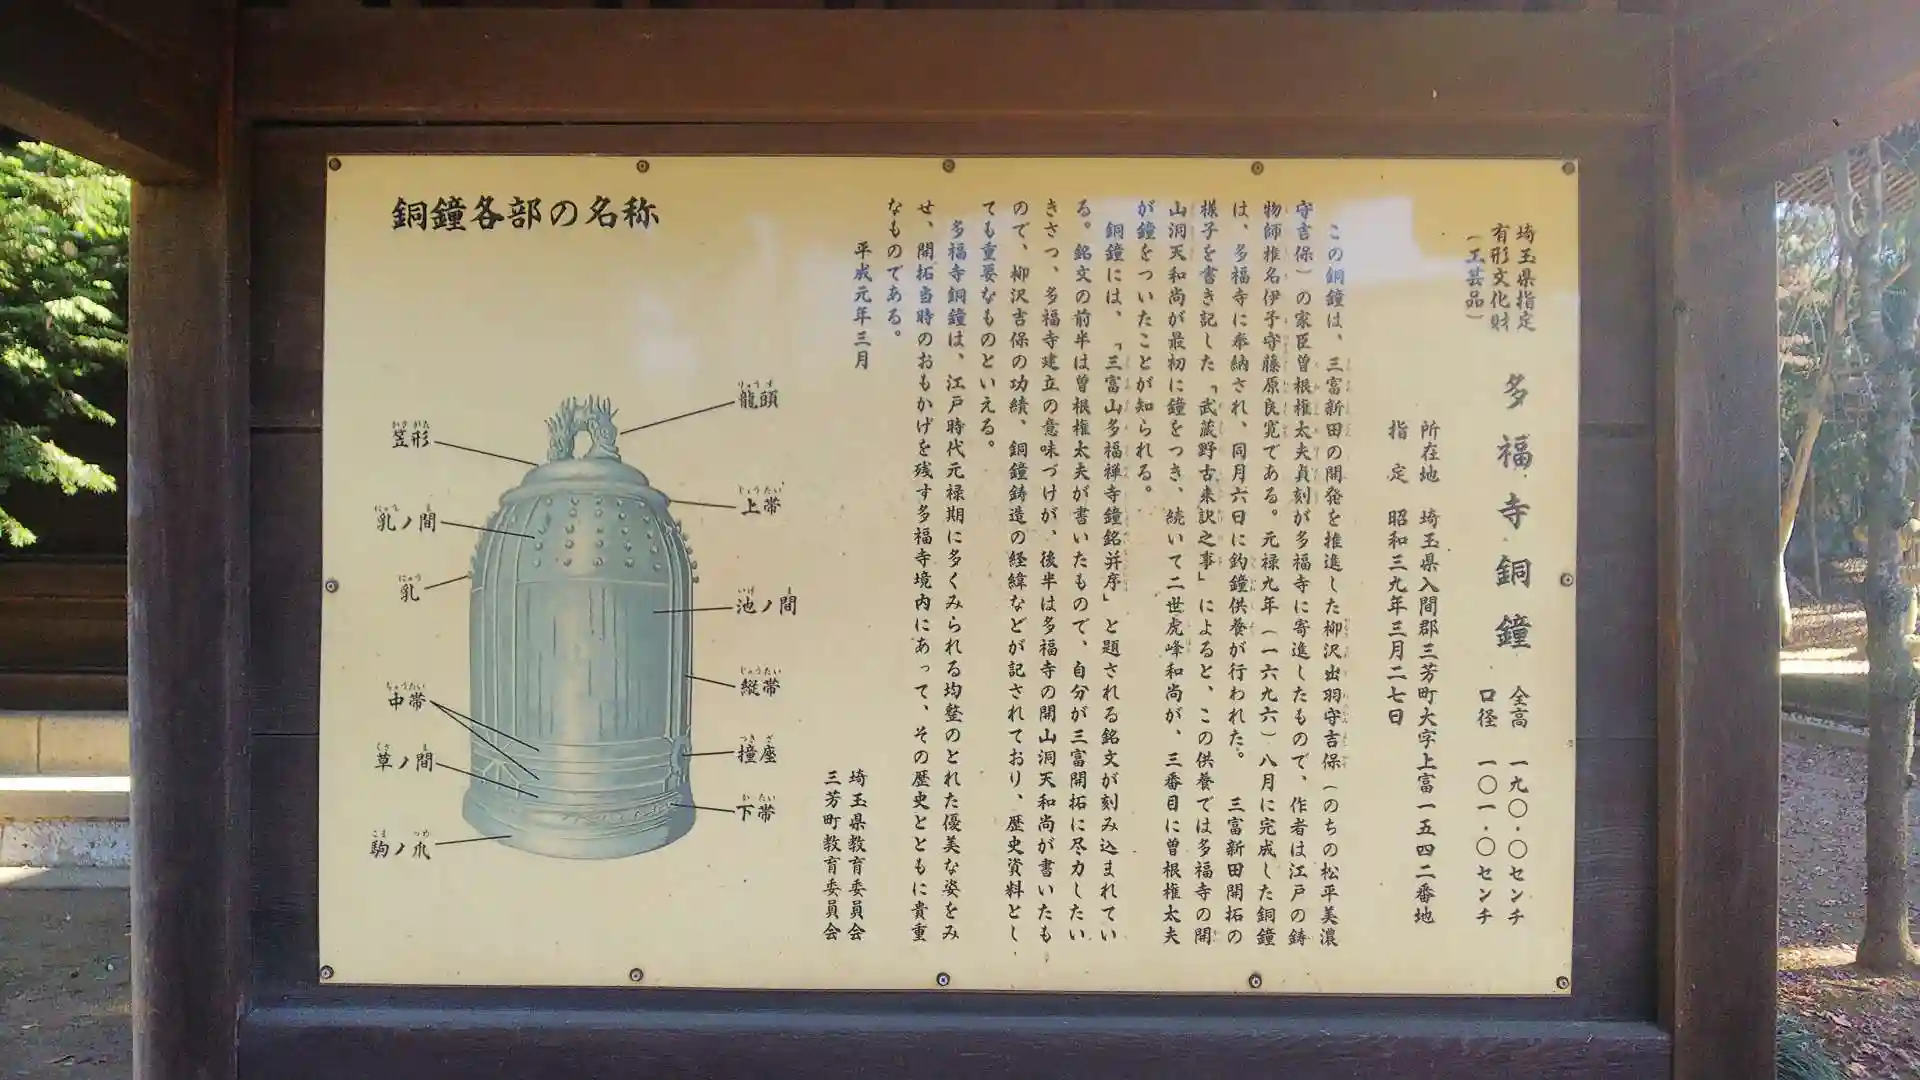 埼玉県指定
有形文化財
（工芸品）
多福寺銅鐘
全高 一九〇.〇センチ
口径 一〇一.〇センチ
所在地 埼玉県入間郡三芳町大字上富一五四二番地
指定 昭和三九年三月二七日
この銅鐘は、三富新田の開発を推進した柳沢出羽守吉保（のちの松平美濃
守吉保）の家臣曽根権太夫貞刻が多福寺に寄進したもので、作者は江戸の鋳
物師椎名伊予守藤原良寛である。元禄九年（一六九六）八月に完成した銅鐘
は、多福寺に奉納され、同月六日に釣鐘供養が行われた。 三富新田開拓の
様子を書き記した「武蔵野古来訳之事」によると、この供養では多福寺の開
山洞天和尚が最初に鐘をつき、続いて二世虎峰和尚が、三番目に曽根権太夫
が鐘をついたことが知られる。
銅鐘には、「三富山多福禅寺鐘銘并序」と題される銘文が刻み込まれてい
る。銘文の前半は曽根権太夫が書いたもので、自分が三富開拓に尽力したい
きさつ、多福寺建立の意味づけが、後半は多福寺の開山洞天和尚が書いたも
ので、柳沢吉保の功績、銅鐘鋳造の経緯などが記されており、歴史資料とし
ても重要なものといえる。
多福寺銅鐘は、江戸時代元禄期に多くみられる均整のとれた優美な姿をみ
せ、開拓当時のおもかげを残す多福寺境内にあって、その歴史とともに貴重
なものである。
平成元年三月
埼玉県教育委員会
三芳町教育委員会
銅鐘各部の名称
りゅうず
龍頭
かさがた
笠形
じょうたい
上帯
にゅう ま
乳ノ間
にゅう
乳
いけ ま
池ノ間
じゅうたい
縦帯
ちゅうたい
中帯
つきざ
撞座
くさ ま
草ノ間
かたい
下帯
こま つめ
駒ノ爪